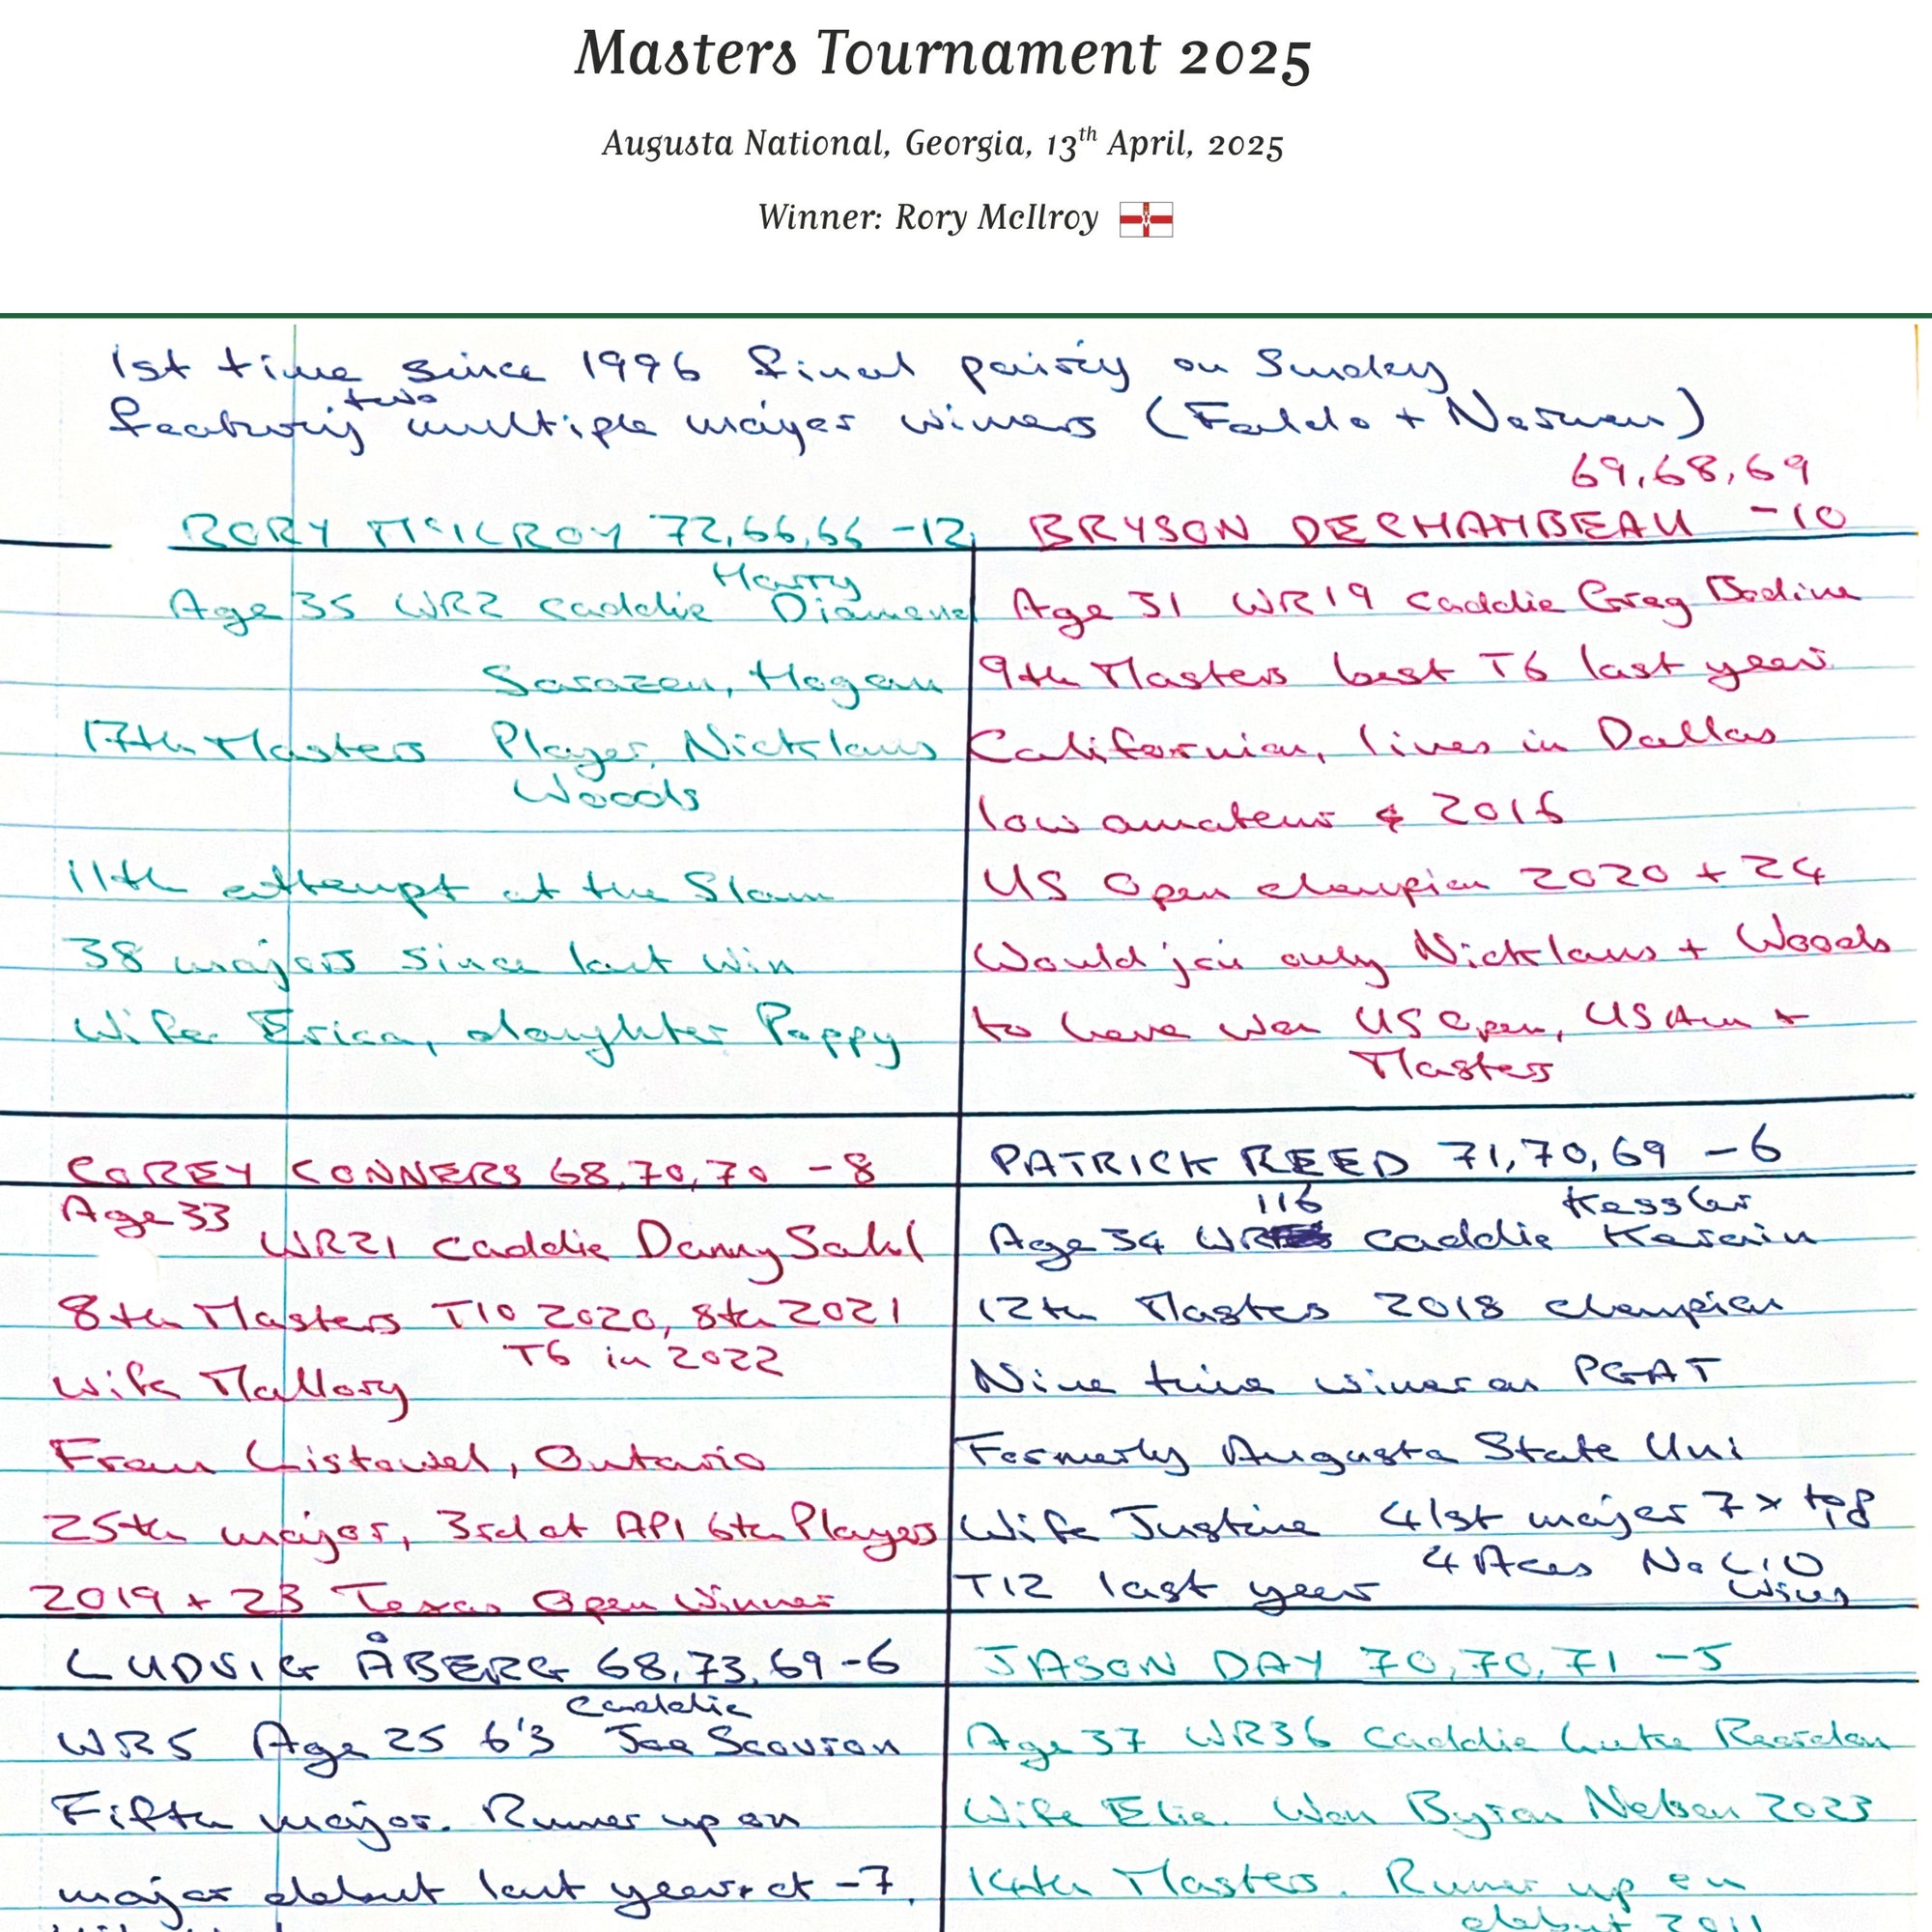 Masters Tournament 2025
Augusta National, Georgia, 13th April, 2025
Winner: Rory McIlroy
1st time since 1996 final pairing on Sunday
featuring two multiple major winners (Faldo + Norman)
RORY McILROY 72,66,66 -12
Age 35 WR2 caddie Harry Diamond
Sarazen, Hogan
17th Masters Player, Nicklaus
Woods
11th attempt at the Slam
38 majors since last win
Wife Erica, daughter Poppy
69,68,69
BRYSON DECHAMBEAU -10
Age 31 WR19 caddie Greg Bodine
9th Masters best T6 last year
Californian, lives in Dallas
low amateur 2016
US Open champion 2020 + 24
Would join only Nicklaus + Woods
to have won US Open, US Am +
Masters
COREY CONNERS 68,70,70 -8
Age 33 WR21 caddie Danny Sahl
8th Masters T10 2020, 8th 2021
T6 in 2022
Wife Mallory
From Listowel, Ontario
25th major, 3rd at API 6th Players
2019 + 23 Texas Open Winner
PATRICK REED 71,70,69 -6
Age 34 WR 116 caddie Kessler Karain
12th Masters 2018 champion
Nine time winner on PGAT
Formerly Augusta State Uni
Wife Justine 41st major 7 x top
4 Aces No LIV
T12 last year wins
LUDVIG ÅBERG 68,73,69 -6
WR5 Age 25 6'3 caddie Joe Scovron
Fifth major. Runner up on
major debut last year at -7.
JASON DAY 70,70,71 -5
Age 37 WR36 caddie Luke Reardon
Wife Ellie. Won Byron Nelson 2023
14th Masters. Runner up on
debut 2011